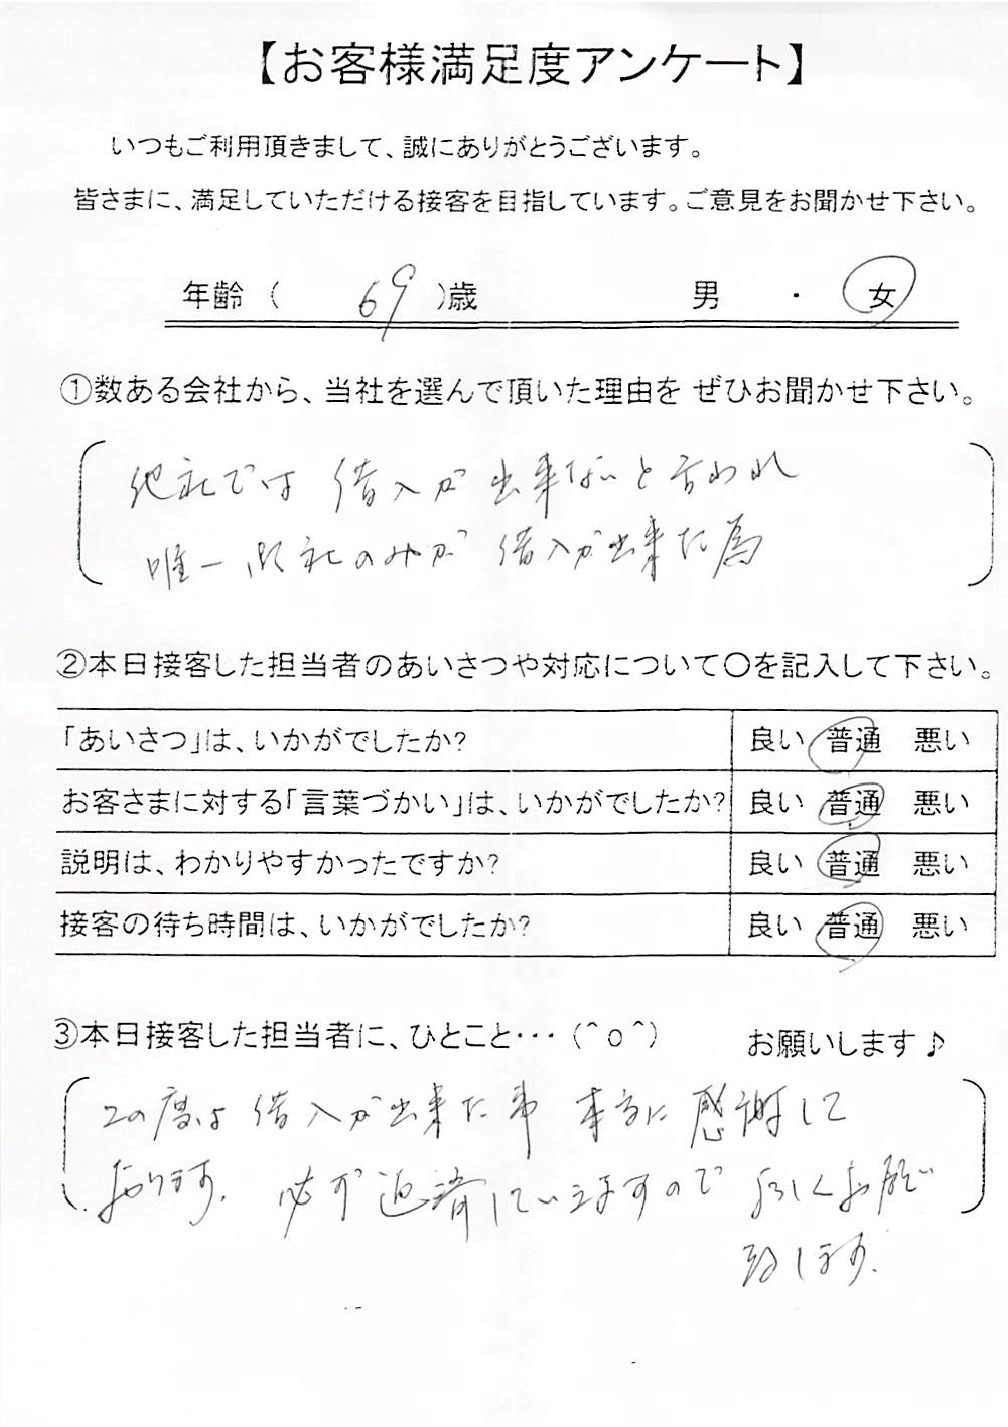 【お客様満足度アンケート】
いつもご利用頂きまして、誠にありがとうございます。
皆さまに、満足していただける接客を目指しています。ご意見をお聞かせ下さい。
年齢 ( 69 )歳 男 ・ 女
①数ある会社から、当社を選んで頂いた理由を ぜひお聞かせ下さい。
他社では 借入が 出来ないと言われ
唯一 御社のみが 借入が出来た為
②本日接客した担当者のあいさつや対応について〇を記入して下さい。
「あいさつ」は、いかがでしたか? 良い 普通 悪い
お客さまに対する「言葉づかい」は、いかがでしたか? 良い 普通 悪い
説明は、わかりやすかったですか? 良い 普通 悪い
接客の待ち時間は、いかがでしたか? 良い 普通 悪い
③本日接客した担当者に、ひとこと・・・(^o^) お願いします♪
この度は 借入が出来た事 本当に 感謝して
おります。必ず返済していきますので よろしくお願い
致します。